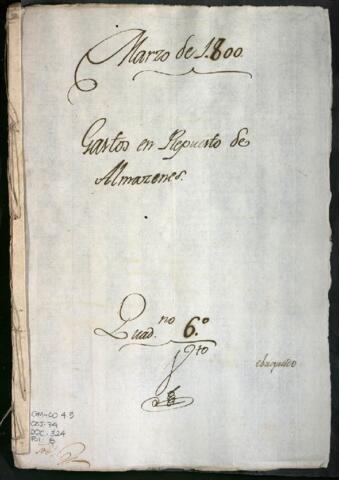 Marzo de 1800.
Gastos en Repuesto de
Almazenes.
Quad.no 6.o
gto
chequeado
OM-CO 43
CAJ: 34
DOC: 324
Fol: 6